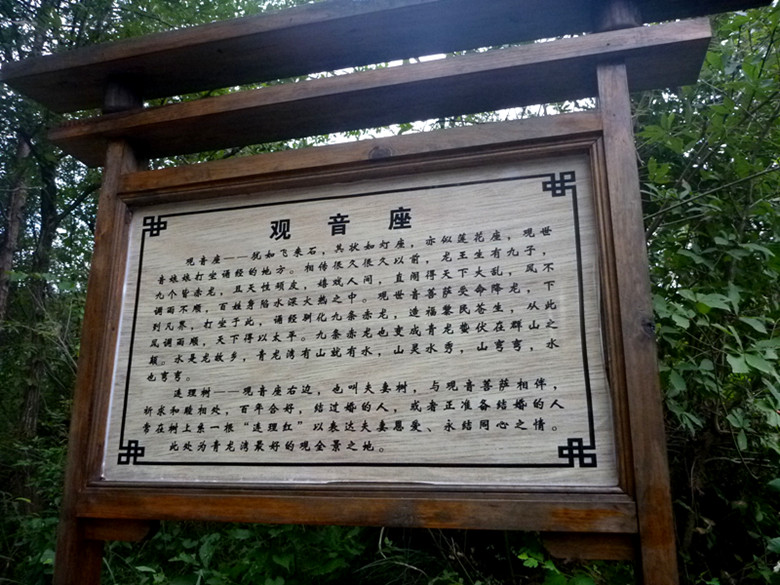 观音座
观音座——犹如飞来石，其状如灯座，亦似莲花座，观世
音娘娘打坐诵经的地方。相传很久很久以前，龙王生有九子，
九个皆赤龙，且天性顽皮，嬉戏人间，直闹得天下大乱，风不
调雨不顺，百姓身陷水深火热之中。观世音菩萨受命降龙，下
到凡界，打坐于此，诵经驯化九条赤龙，造福黎民苍生，从此
风调雨顺，天下得以太平。九条赤龙也变成青龙蛰伏在群山之
巅。水是龙故乡，青龙湾有山就有水，山灵水秀，山弯弯，水
也弯弯。
连理树——观音座右边，也叫夫妻树，与观音菩萨相伴，
祈求和睦相处，百年合好，结过婚的人，或者正准备结婚的人
常在树上系一根“连理红”以表达夫妻恩爱、永结同心之情。
此处为青龙湾最好的观全景之地。